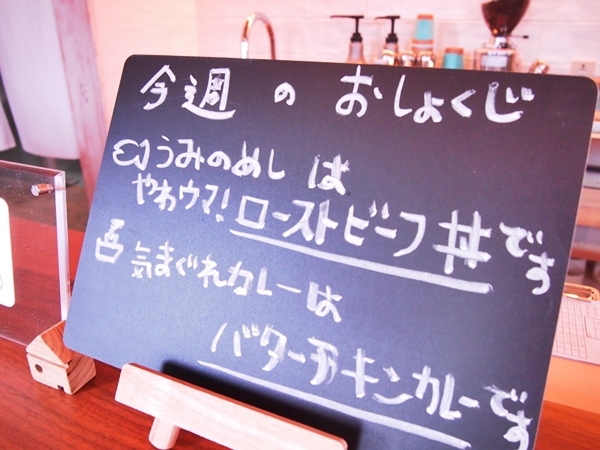 今週のおしょくじ
うみのめしは
やわウマ!ローストビーフ丼です
気まぐれカレーは
バターチキンカレーです